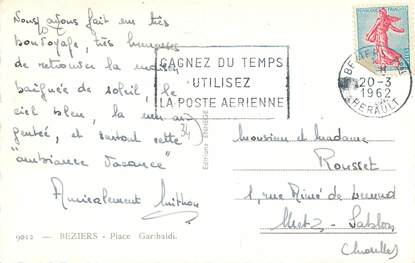 Nous avons fait un très
bon voyage, très heureux
de retrouver la maison
baignée de soleil, le
ciel bleu, la mer argentée, et surtout cette
"ambiance vacance"
Amicalement
9012 — BEZIERS - Place Garibaldi.
GAGNEZ DU TEMPS
UTILISEZ
LA POSTE AERIENNE
34
Editions
REPUBLIQUE FRANÇAISE
BEZIERS
20-3
1962
HERAULT
Monsieur et Madame
Rousset
1, rue Aimé de
Metz - Sablon
(Moselle)